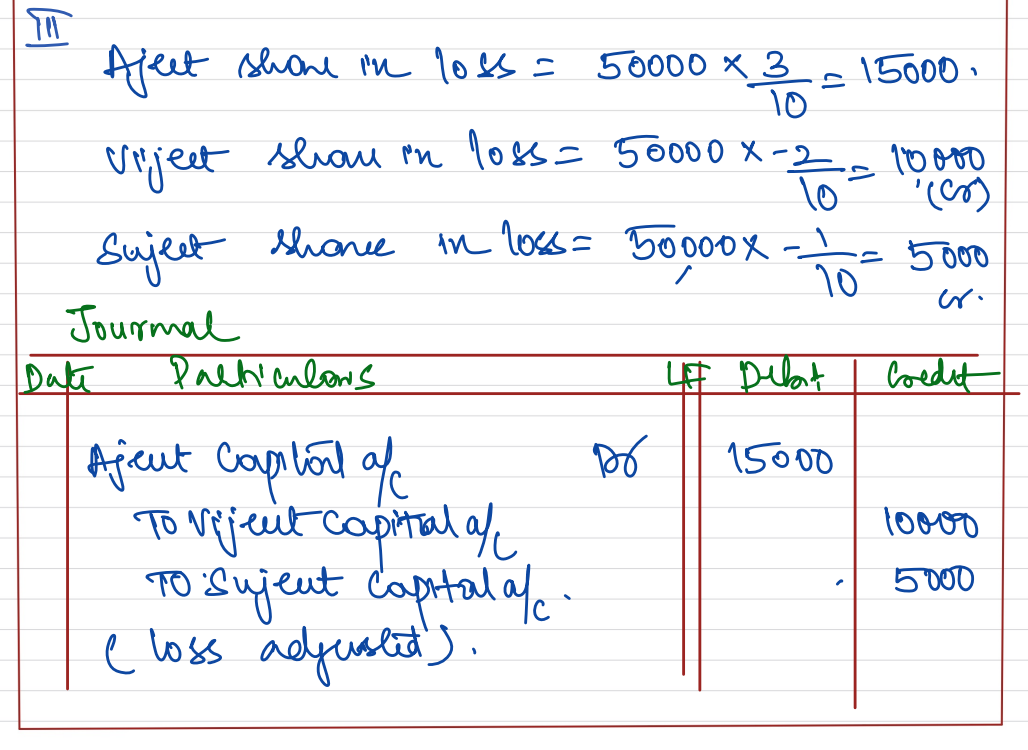 III
Ajeet share in loss = 50000 × 3/10 = 15000.
Vijeet share in loss = 50000 × -2/10 = 10000 (Cr)
Sujeet share in loss = 50000 × -1/10 = 5000 cr.
Journal
Date Particulars LF Debit Credit
Ajeet Capital a/c Dr 15000
To Vijeet Capital a/c 10000
To Sujeet Capital a/c. 5000
(loss adjusted).